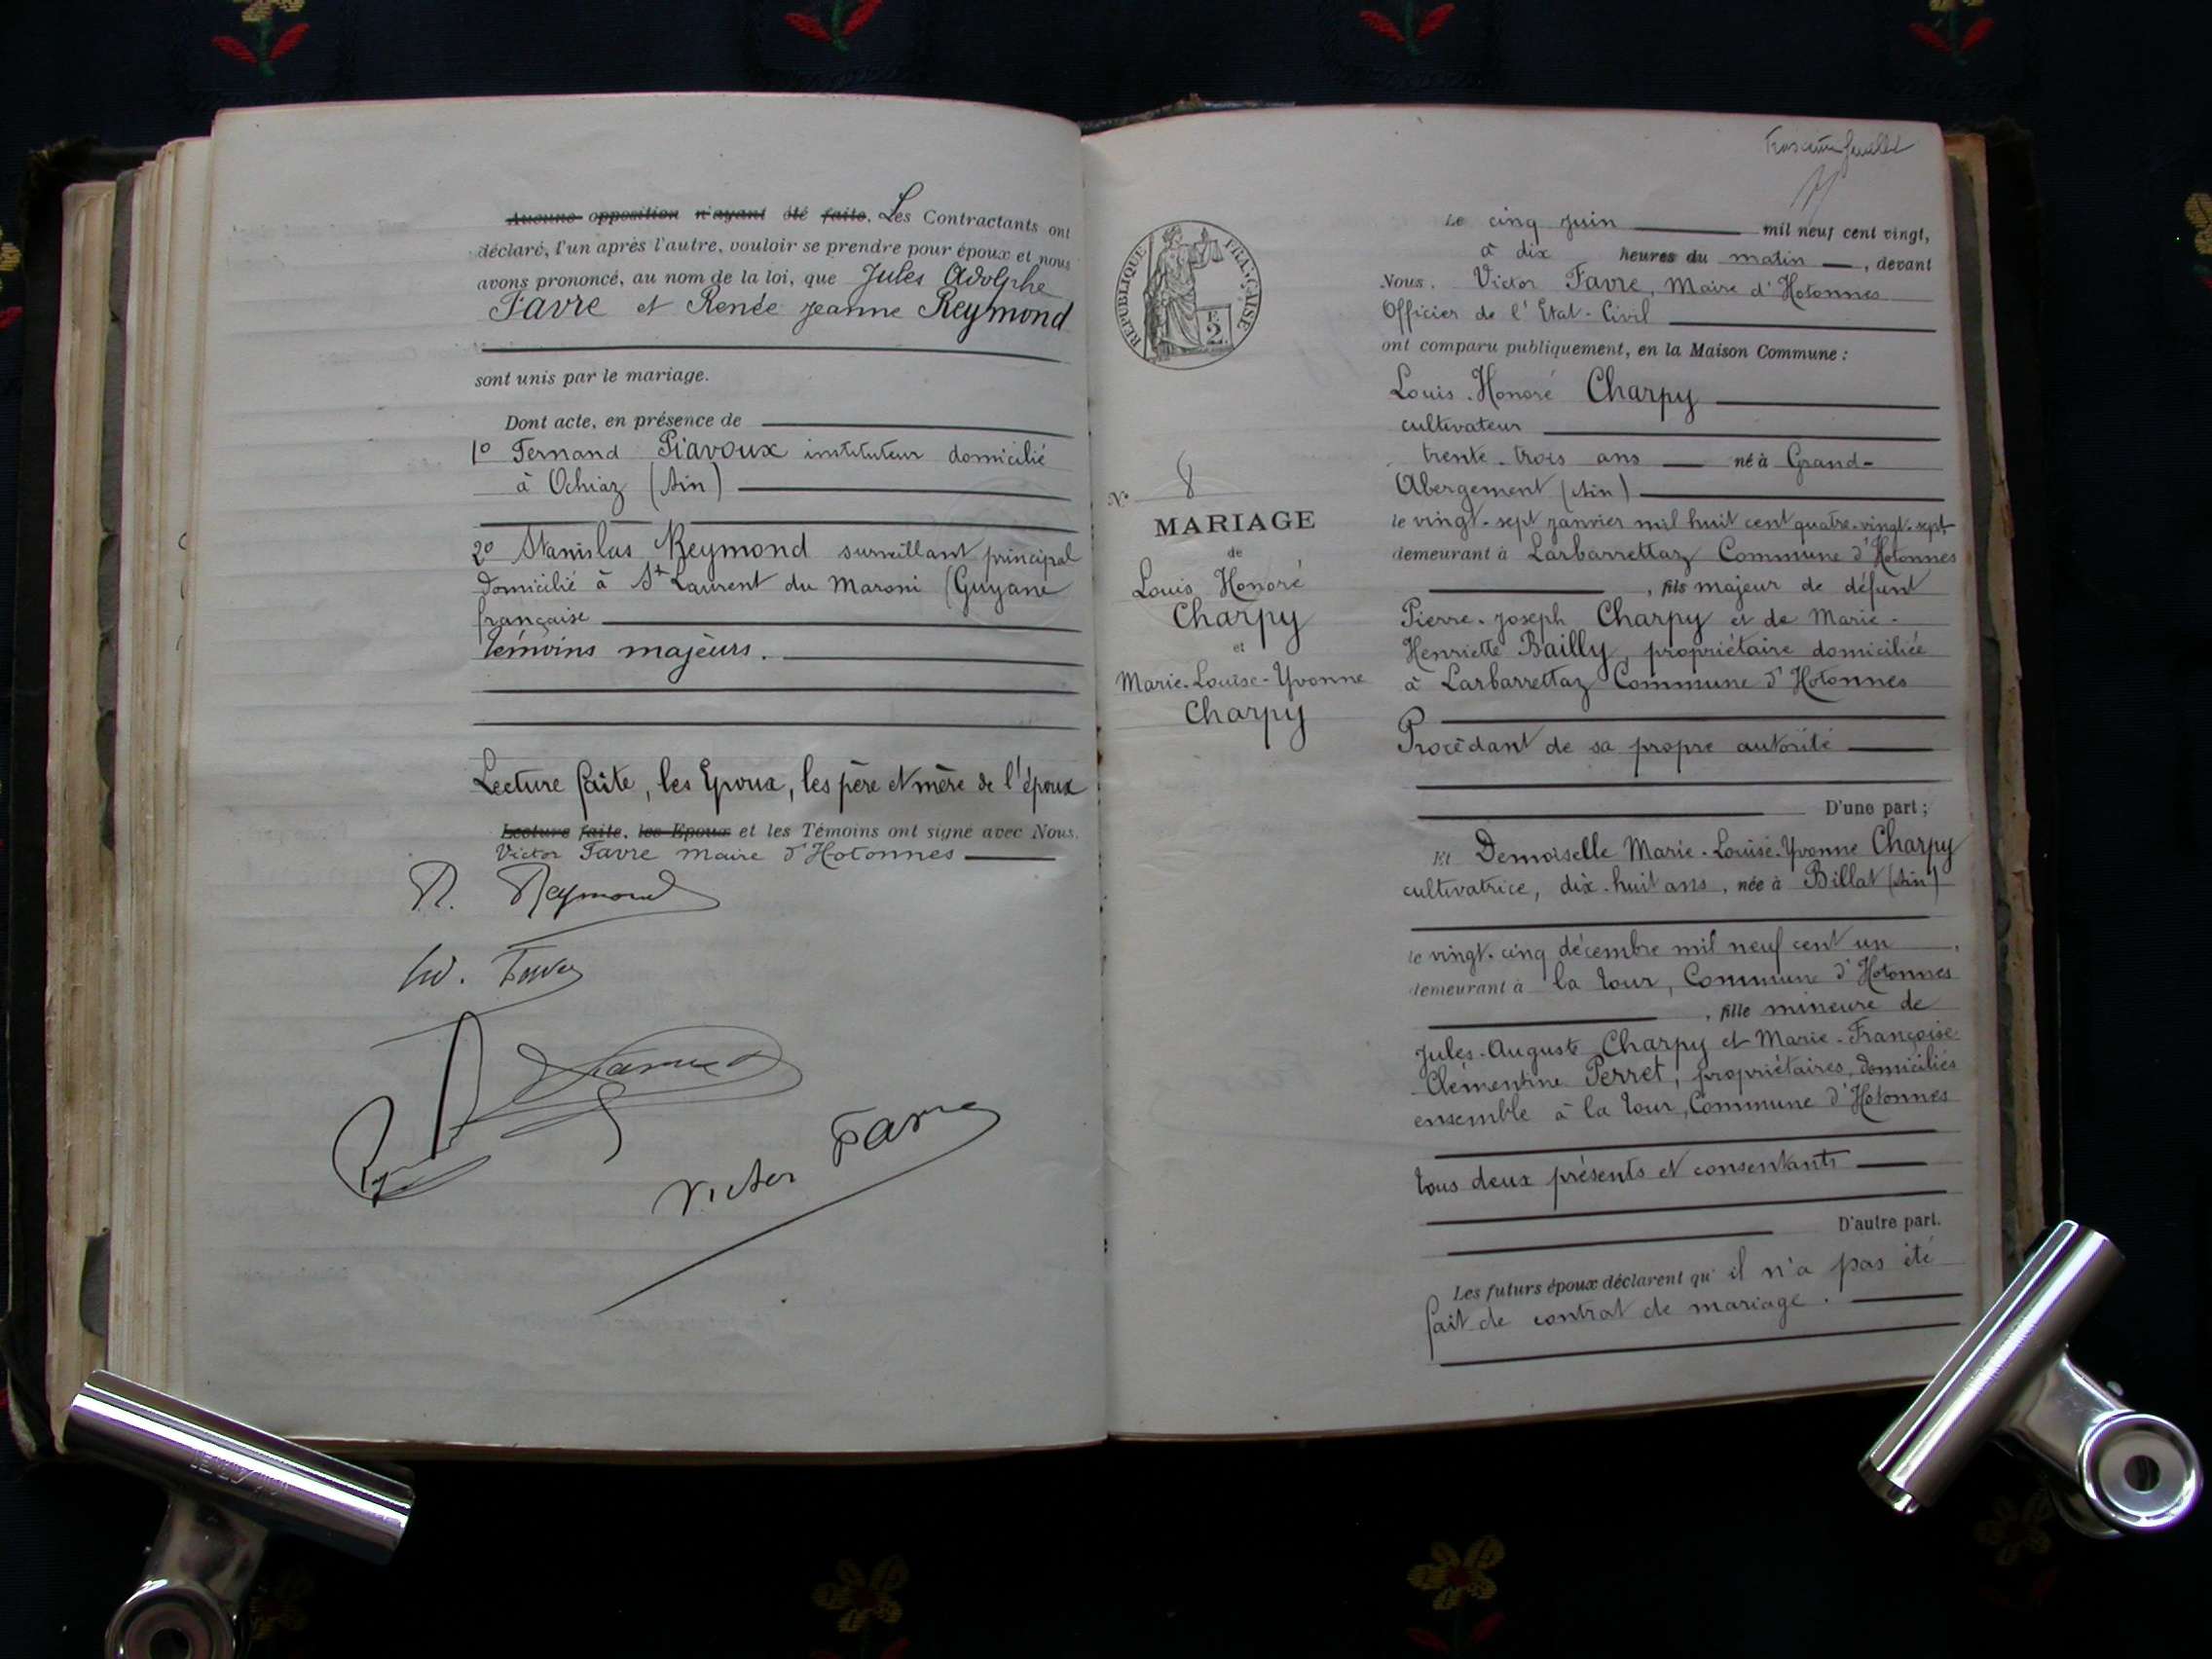 Aucune opposition n'ayant été faite, Les Contractants ont
déclaré, l'un après l'autre, vouloir se prendre pour époux et nous
avons prononcé, au nom de la loi, que Jules Adolphe
Favre et Renée Jeanne Reymond
sont unis par le mariage.
Dont acte, en présence de
1º Fernand Piavoux instituteur domicilié
à Ochiaz (Ain)
2º Stanislas Reymond surveillant principal
domicilié à St Laurent du Maroni (Guyane
française
témoins majeurs.
Lecture faite, les Epoux, les père et mère de l'époux
Lecture faite, les Epoux et les Témoins ont signé avec Nous.
Victor Favre maire d'Hotonnes
R. Reymond
Victor Favre
Troisième feuillet
RÉPUBLIQUE FRANÇAISE
F.
2.
Nº 8
MARIAGE
de
Louis Honoré
Charpy
et
Marie-Louise-Yvonne
Charpy
Le cinq juin mil neuf cent vingt,
à dix heures du matin, devant
Nous. Victor Favre, Maire d'Hotonnes
Officier de l'Etat-Civil
ont comparu publiquement, en la Maison Commune :
Louis-Honoré Charpy
cultivateur
trente-trois ans né à Grand-
Abergement (Ain)
le vingt-sept janvier mil huit cent quatre-vingt-sept
demeurant à Larbarrettaz Commune d'Hotonnes
, fils majeur de défunt
Pierre-Joseph Charpy et de Marie-
Henriette Bailly, propriétaire domiciliée
à Larbarrettaz Commune d'Hotonnes
Procédant de sa propre autorité
D'une part ;
Et Demoiselle Marie-Louise-Yvonne Charpy
cultivatrice, dix-huit ans, née à Billat (Ain)
le vingt-cinq décembre mil neuf cent un,
demeurant à la tour, Commune d'Hotonnes
, fille mineure de
Jules-Auguste Charpy et Marie-Françoise
Clémentine Perret, propriétaires, domiciliés
ensemble à la tour, Commune d'Hotonnes
tous deux présents et consentants
D'autre part.
Les futurs époux déclarent qu'il n'a pas été
fait de contrat de mariage.